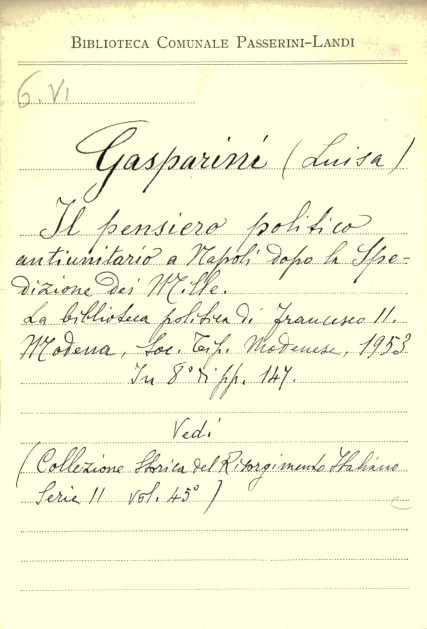 BIBLIOTECA COMUNALE PASSERINI-LANDI
6. VI
Gasparini (Luisa)
Il pensiero politico
antiunitario a Napoli dopo la Spe-
dizione dei Mille.
La biblioteca politica di Francesco II.
Modena, Soc. Tip. Modenese, 1953
In 8° di pp. 147.
Vedi
(Collezione Storica del Risorgimento Italiano
Serie II vol. 45°)